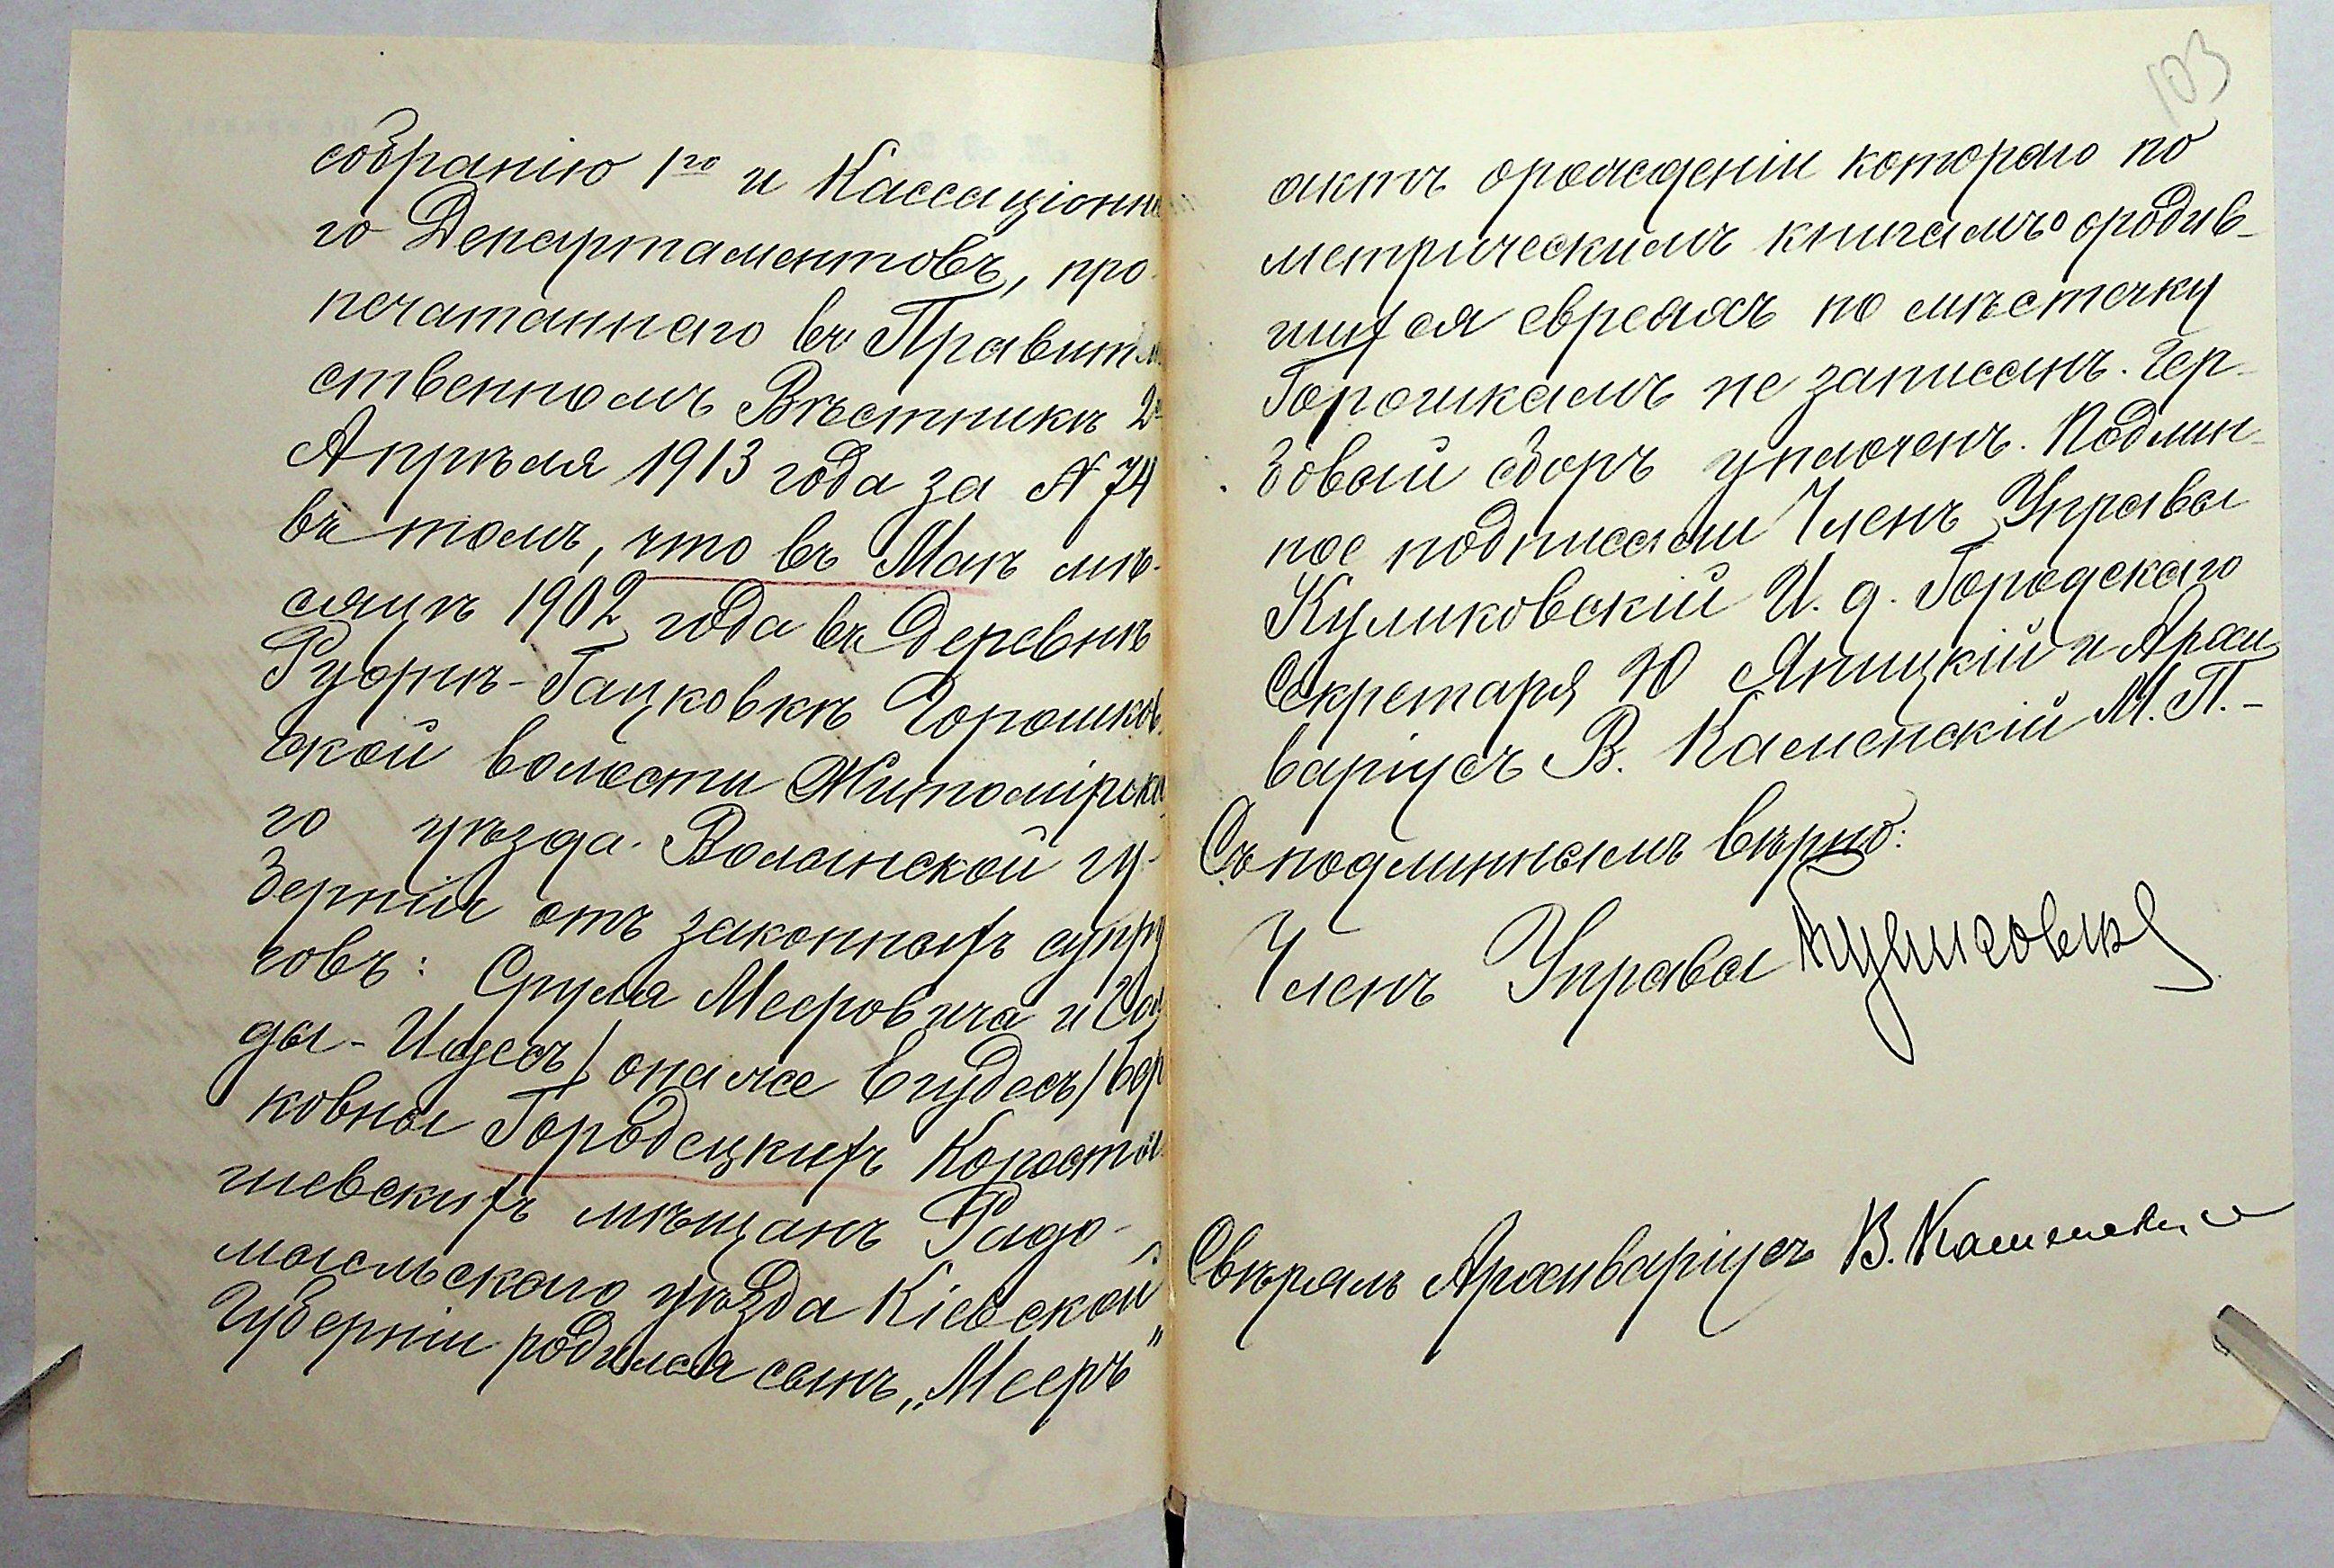 собранію 1го и Кассаціонна
го Департаментовъ, про-
печатаннаго въ Правитель
ственномъ Вѣстникѣ 2го
Апрѣля 1913 года за № 74
въ томъ, что въ Маѣ мѣ-
сяцѣ 1902 года въ деревнѣ
Рудни-Гацковкѣ Горошков
ской волости Житомірска
го уѣзда Волынской гу-
берніи отъ законныхъ супру
говъ: Сруля Мееровича и
ды-Идесъ /она же Егудесъ/ Бер
ковны Городецкихъ Коросты
шевскихъ мѣщанъ Радо-
мысльскаго уѣзда Кіевской
Губерніи родился сынъ „Мееръ"
103
актъ о рожденіи котораго по
метрическимъ книгамъ о родив-
шихся евреяхъ по мѣстечку
Горошкамъ не записанъ. Гер-
бовый сборъ уплоченъ. Подлин-
ное подписали Членъ Управы
Куликовскій И. д. Городскаго
Секретаря Ю Яницкій и Архи
варіусъ В. Каменскій М.П.-
Съ подлиннымъ вѣрно:
Членъ Управы Куликовскій
Свѣрялъ Архиваріусъ В. Каменскій